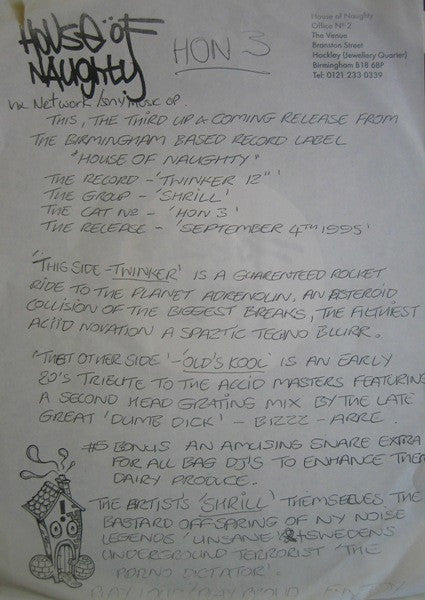 HOUSE OF
NAUGHTY
HON 3
House of Naughty
Office Nº 2
The Venue
Branston Street
Hockley (Jewellery Quarter)
Birmingham B18 6BP
Tel: 0121 233 0339
via NETWORK/SONY MUSIC OP.
THIS, THE THIRD UP & COMING RELEASE FROM
THE BIRMINGHAM BASED RECORD LABEL
"HOUSE OF NAUGHTY"
THE RECORD - 'TWINKER 12"'
THE GROUP - 'SHRILL'
THE CAT Nº - 'HON 3'
THE RELEASE - 'SEPTEMBER 4TH 1995'
'THIS SIDE - TWINKER' IS A GUARENTEED ROCKET
RIDE TO THE PLANET ADRENOLIN, AN ASTEROID
COLLISION OF THE BIGGEST BREAKS, THE FILTHIEST
ACIID NOVATION A SPAZTIC TECHNO BLURR.
'THAT OTHER SIDE' - 'OLD'S KOOL' IS AN EARLY
80'S TRIBUTE TO THE ACCID MASTERS FEATURING
A SECOND HEAD GRATING MIX BY THE LATE
GREAT 'DUMB DICK' - BIZZZ - ARRE.
#5 BONUS AN AMUSING SNARE EXTRA
FOR ALL BAG DJ'S TO ENHANCE THEIR
DAIRY PRODUCE.
THE ARTISTS 'SHRILL' THEMSELVES THE
BASTARD OFFSPRING OF NY NOISE
LEGENDS 'UNSANE' & SWEDENS
UNDERGROUND TERRORIST 'THE
PORNO DICTATOR'.
PLAY LOUD PLAY PROUD